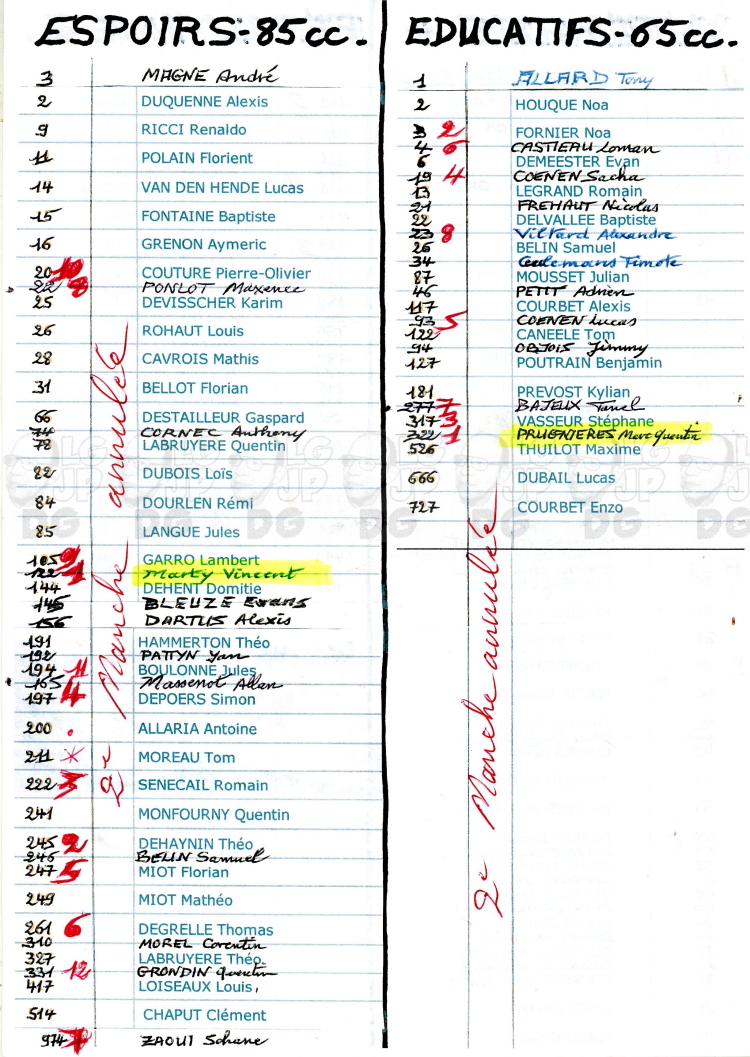 ESPOIRS-85cc.
3 MAGNE André
2 DUQUENNE Alexis
9 RICCI Renaldo
11 POLAIN Florient
14 VAN DEN HENDE Lucas
15 FONTAINE Baptiste
16 GRENON Aymeric
20 10 COUTURE Pierre-Olivier
22 8 PONLOT Maxence
25 DEVISSCHER Karim
26 ROHAUT Louis
28 CAVROIS Mathis
31 BELLOT Florian
66 DESTAILLEUR Gaspard
74 CORNEC Anthony
78 LABRUYERE Quentin
82 DUBOIS Loïs
84 DOURLEN Rémi
85 LANGUE Jules
105 9 GARRO Lambert
122 1 Marty Vincent
144 DEHENT Domitie
145 BLEUZE Evrans
156 DARTUS Alexis
191 HAMMERTON Théo
192 PATTYN Yan
194 11 BOULONNE Jules
165 Massenot Allan
197 4 DEPOERS Simon
200 ALLARIA Antoine
211 MOREAU Tom
222 3 SENECAIL Romain
241 MONFOURNY Quentin
245 2 DEHAYNIN Théo
246 BELIN Samuel
247 5 MIOT Florian
249 MIOT Mathéo
261 6 DEGRELLE Thomas
310 MOREL Corentin
327 LABRUYERE Théo
331 12 GRONDIN Quentin
417 LOISEAUX Louis
514 CHAPUT Clément
974 7 ZAOUI Sohane
2e Manche annulée
EDUCATIFS-65cc.
1 ALLARD Tony
2 HOUQUE Noa
3 2 FORNIER Noa
4 6 CASTIEAU Loman
6 DEMEESTER Evan
19 4 COENEN Sacha
13 LEGRAND Romain
21 FREHAUT Nicolas
22 DELVALLEE Baptiste
23 8 Viltard Alexandre
26 BELIN Samuel
34 Ceulemans Timote
87 MOUSSET Julian
46 PETIT Adrien
117 COURBET Alexis
93 5 COENEN Lucas
122 CANEELE Tom
94 OBJOIS Jimmy
127 POUTRAIN Benjamin
181 PREVOST Kylian
277 7 BAJEUX Tanel
317 3 VASSEUR Stéphane
322 1 PRUGNIERES Marc Quentin
526 THUILOT Maxime
666 DUBAIL Lucas
727 COURBET Enzo
2e Manche annulée